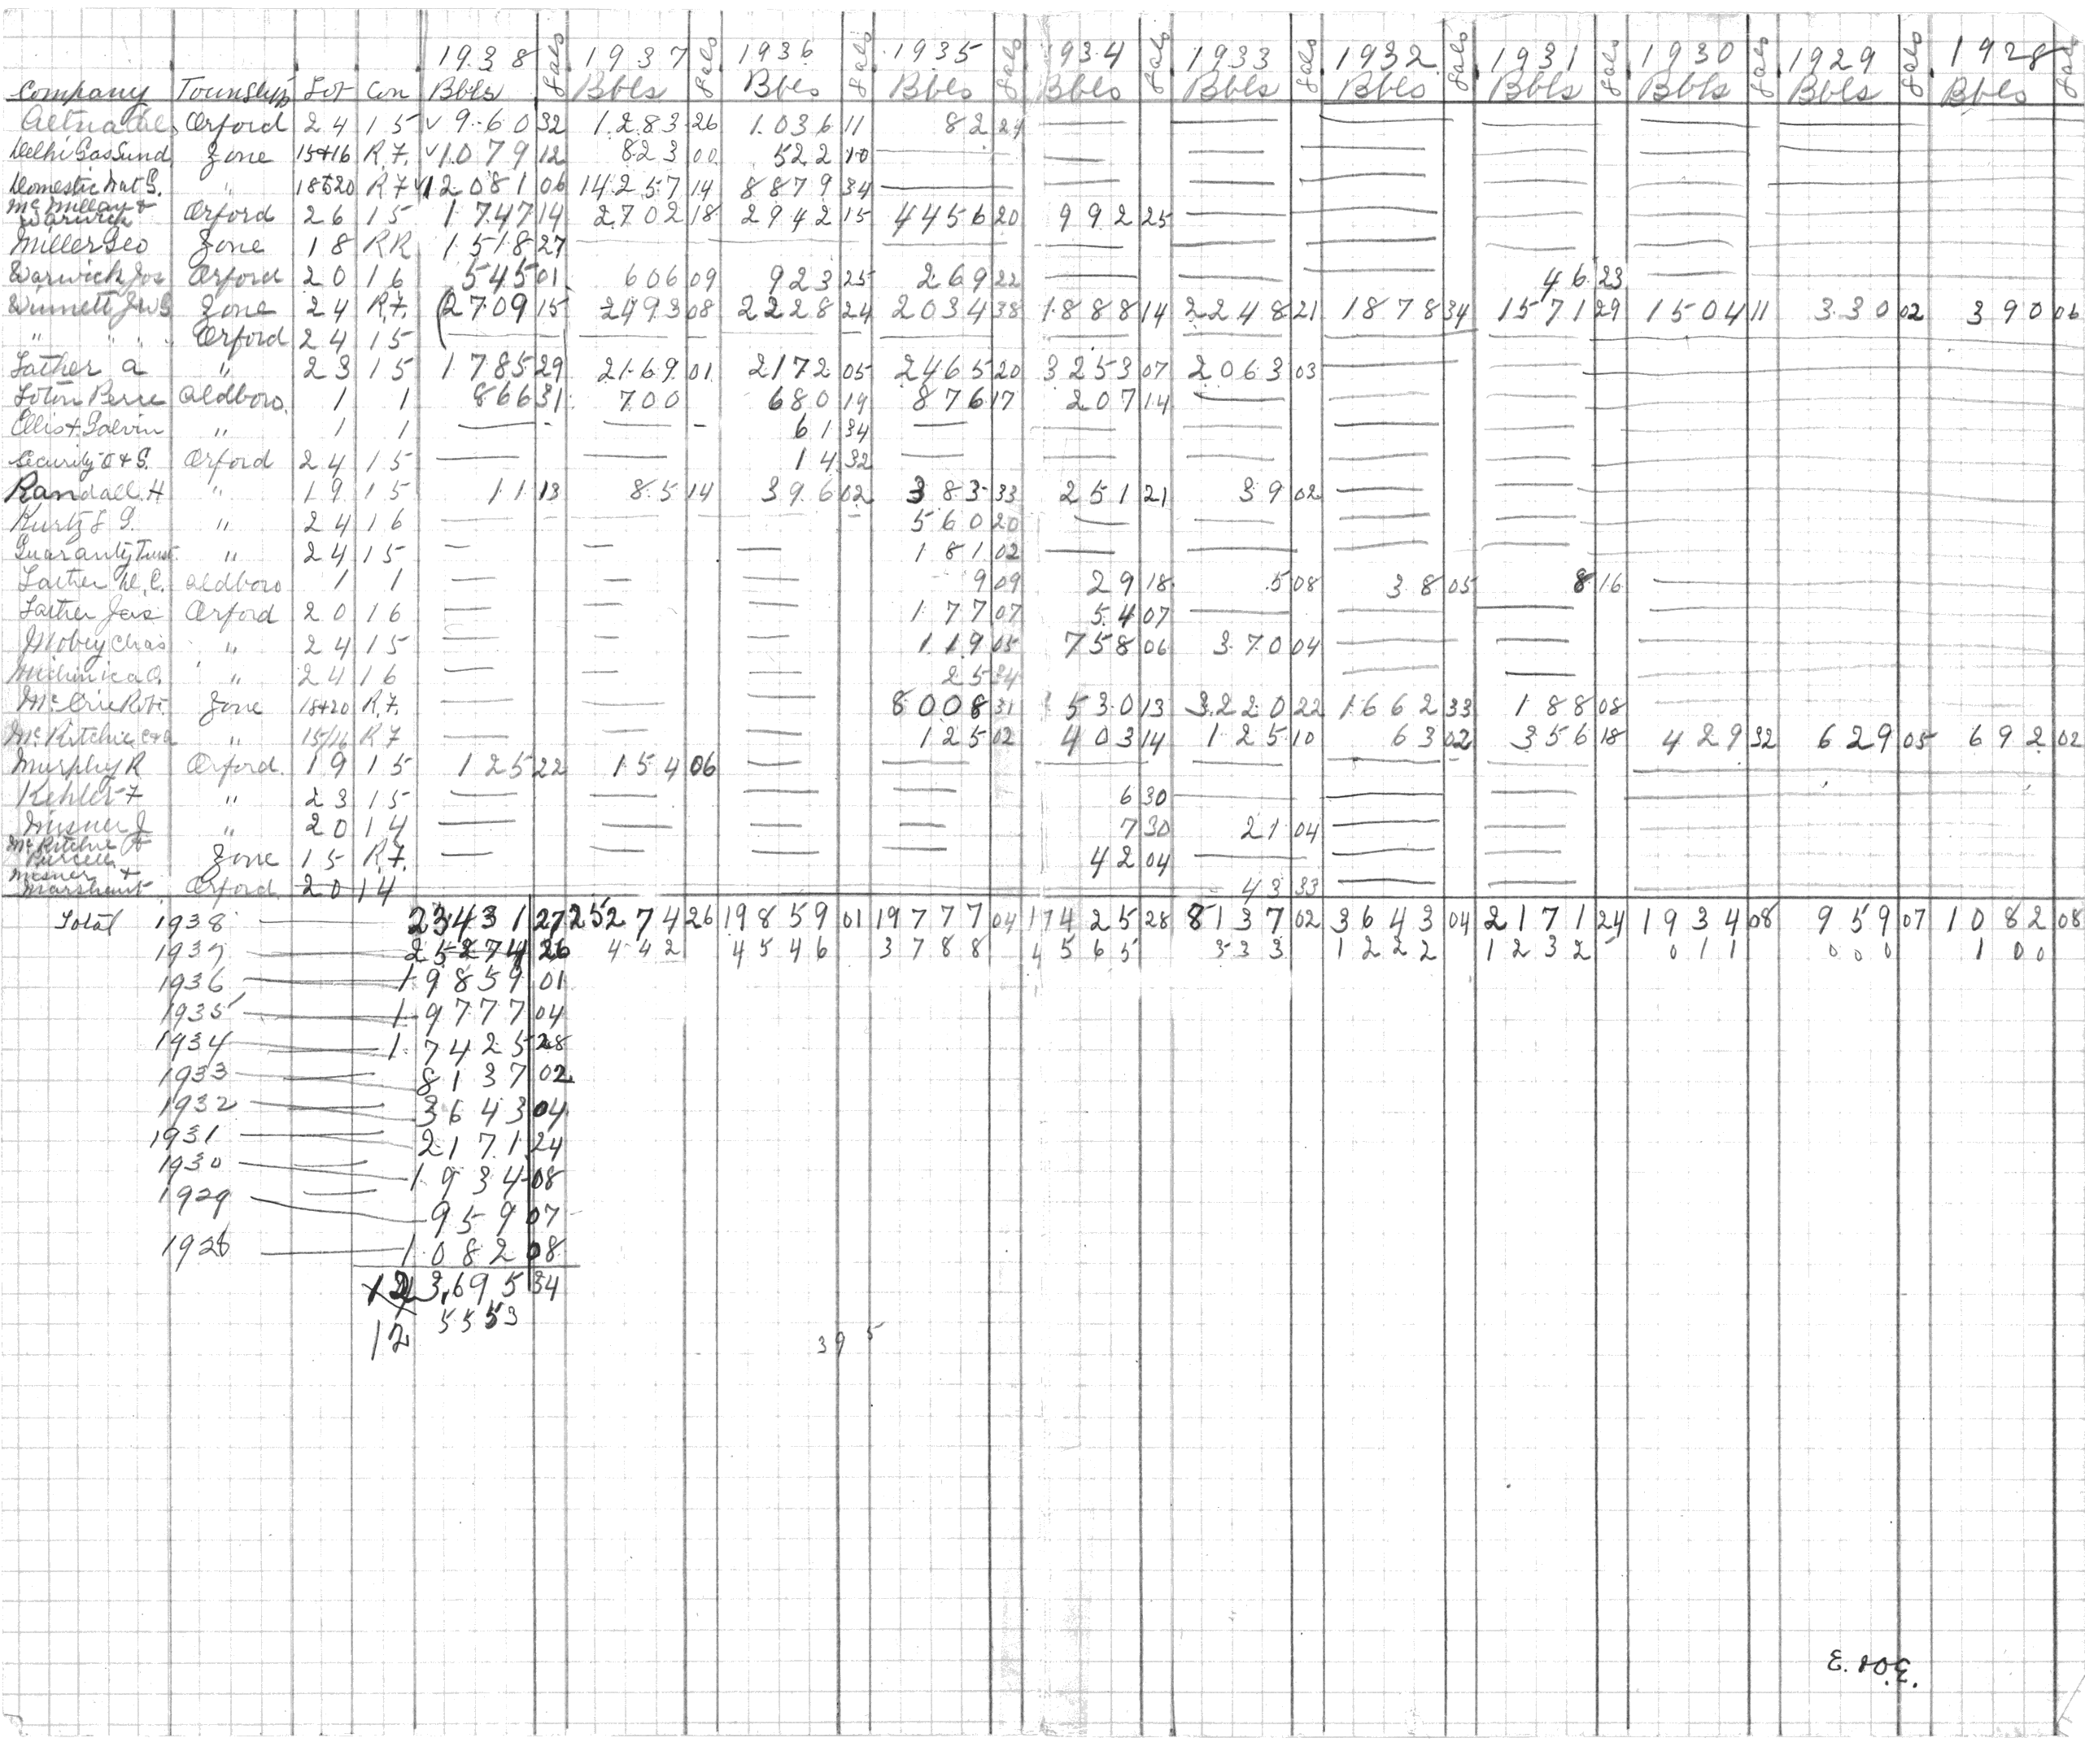 1938 Gals 1937 Gals 1936 Gals 1935 Gals 1934 Gals 1933 Gals 1932 Gals 1931 Gals 1930 Gals 1929 Gals 1928 Gals
Company Township Lot Con Bbls Bbls Bbls Bbls Bbls Bbls Bbls Bbls Bbls Bbls Bbls
Aetna Orford 24 15 √ 960 32 1283 26 1036 11 82 24
Delhi Gas Synd Zone 15+16 R.7. √ 1079 12 823 00 522 10
Domestic Nat G. " 18+20 R7 √ 12081 06 14257 14 8879 34
McMillan & Warwick Orford 26 15 1747 14 2702 18 2942 15 4456 20 992 25
Miller Geo Zone 18 RR 1518 27
Warwick Jos Orford 20 16 545 01 606 09 923 25 269 22 46 23
Winnett JWG Zone 24 R7. (2709 15 2493 08 2228 24 2034 38 1888 14 2248 21 1878 34 1571 29 1504 11 330 02 390 06
" " " Orford 24 15
Father a " 23 15 1785 29 2169 01 2172 05 2465 20 3253 07 2063 03
Loton Perre Aldboro. 1 1 866 31 700 680 19 876 17 207 14
Ellis + Galvin " 1 1 61 34
Security O & G. Orford 24 15 14 32
Randall. H " 19 15 11 13 85 14 396 02 383 33 251 21 39 02
Kurtz L G. " 24 16 560 20
Guaranty Trust. " 24 15 181 02
W. C. Aldboro 1 1 9 09 29 18 5 08 38 05 8 16
Jas Orford 20 16 177 07 54 07
Mobey Chas " 24 15 119 05 758 06 370 04
" 24 16 25 34
McCrie Robt. Zone 18+20 R.7. 8008 31 530 13 3220 22 1662 33 188 08
McRitchie " 15/16 R7 125 02 403 14 125 10 63 02 356 18 429 32 629 05 692 02
Murphy R Orford. 19 15 125 22 154 06
Kehler F " 23 15 6 30
Misner J " 20 14 7 30 21 04
McRitchie & Purcell Zone 15 R7. 42 04
Misner & Orford 20 14 43 33
Total 1938 23431 27 25274 26 19859 01 19777 04 17425 28 8137 02 3643 04 2171 24 1934 08 959 07 1082 08
1937 25274 26 442 4546 3788 4565 333 1222 1232 011 000 100
1936 19859 01
1935 19777 04
1934 17425 28
1933 8137 02
1932 3643 04
1931 2171 24
1930 1934 08
1929 959 07
1928 1082 08
3,695 34
12 5553
395